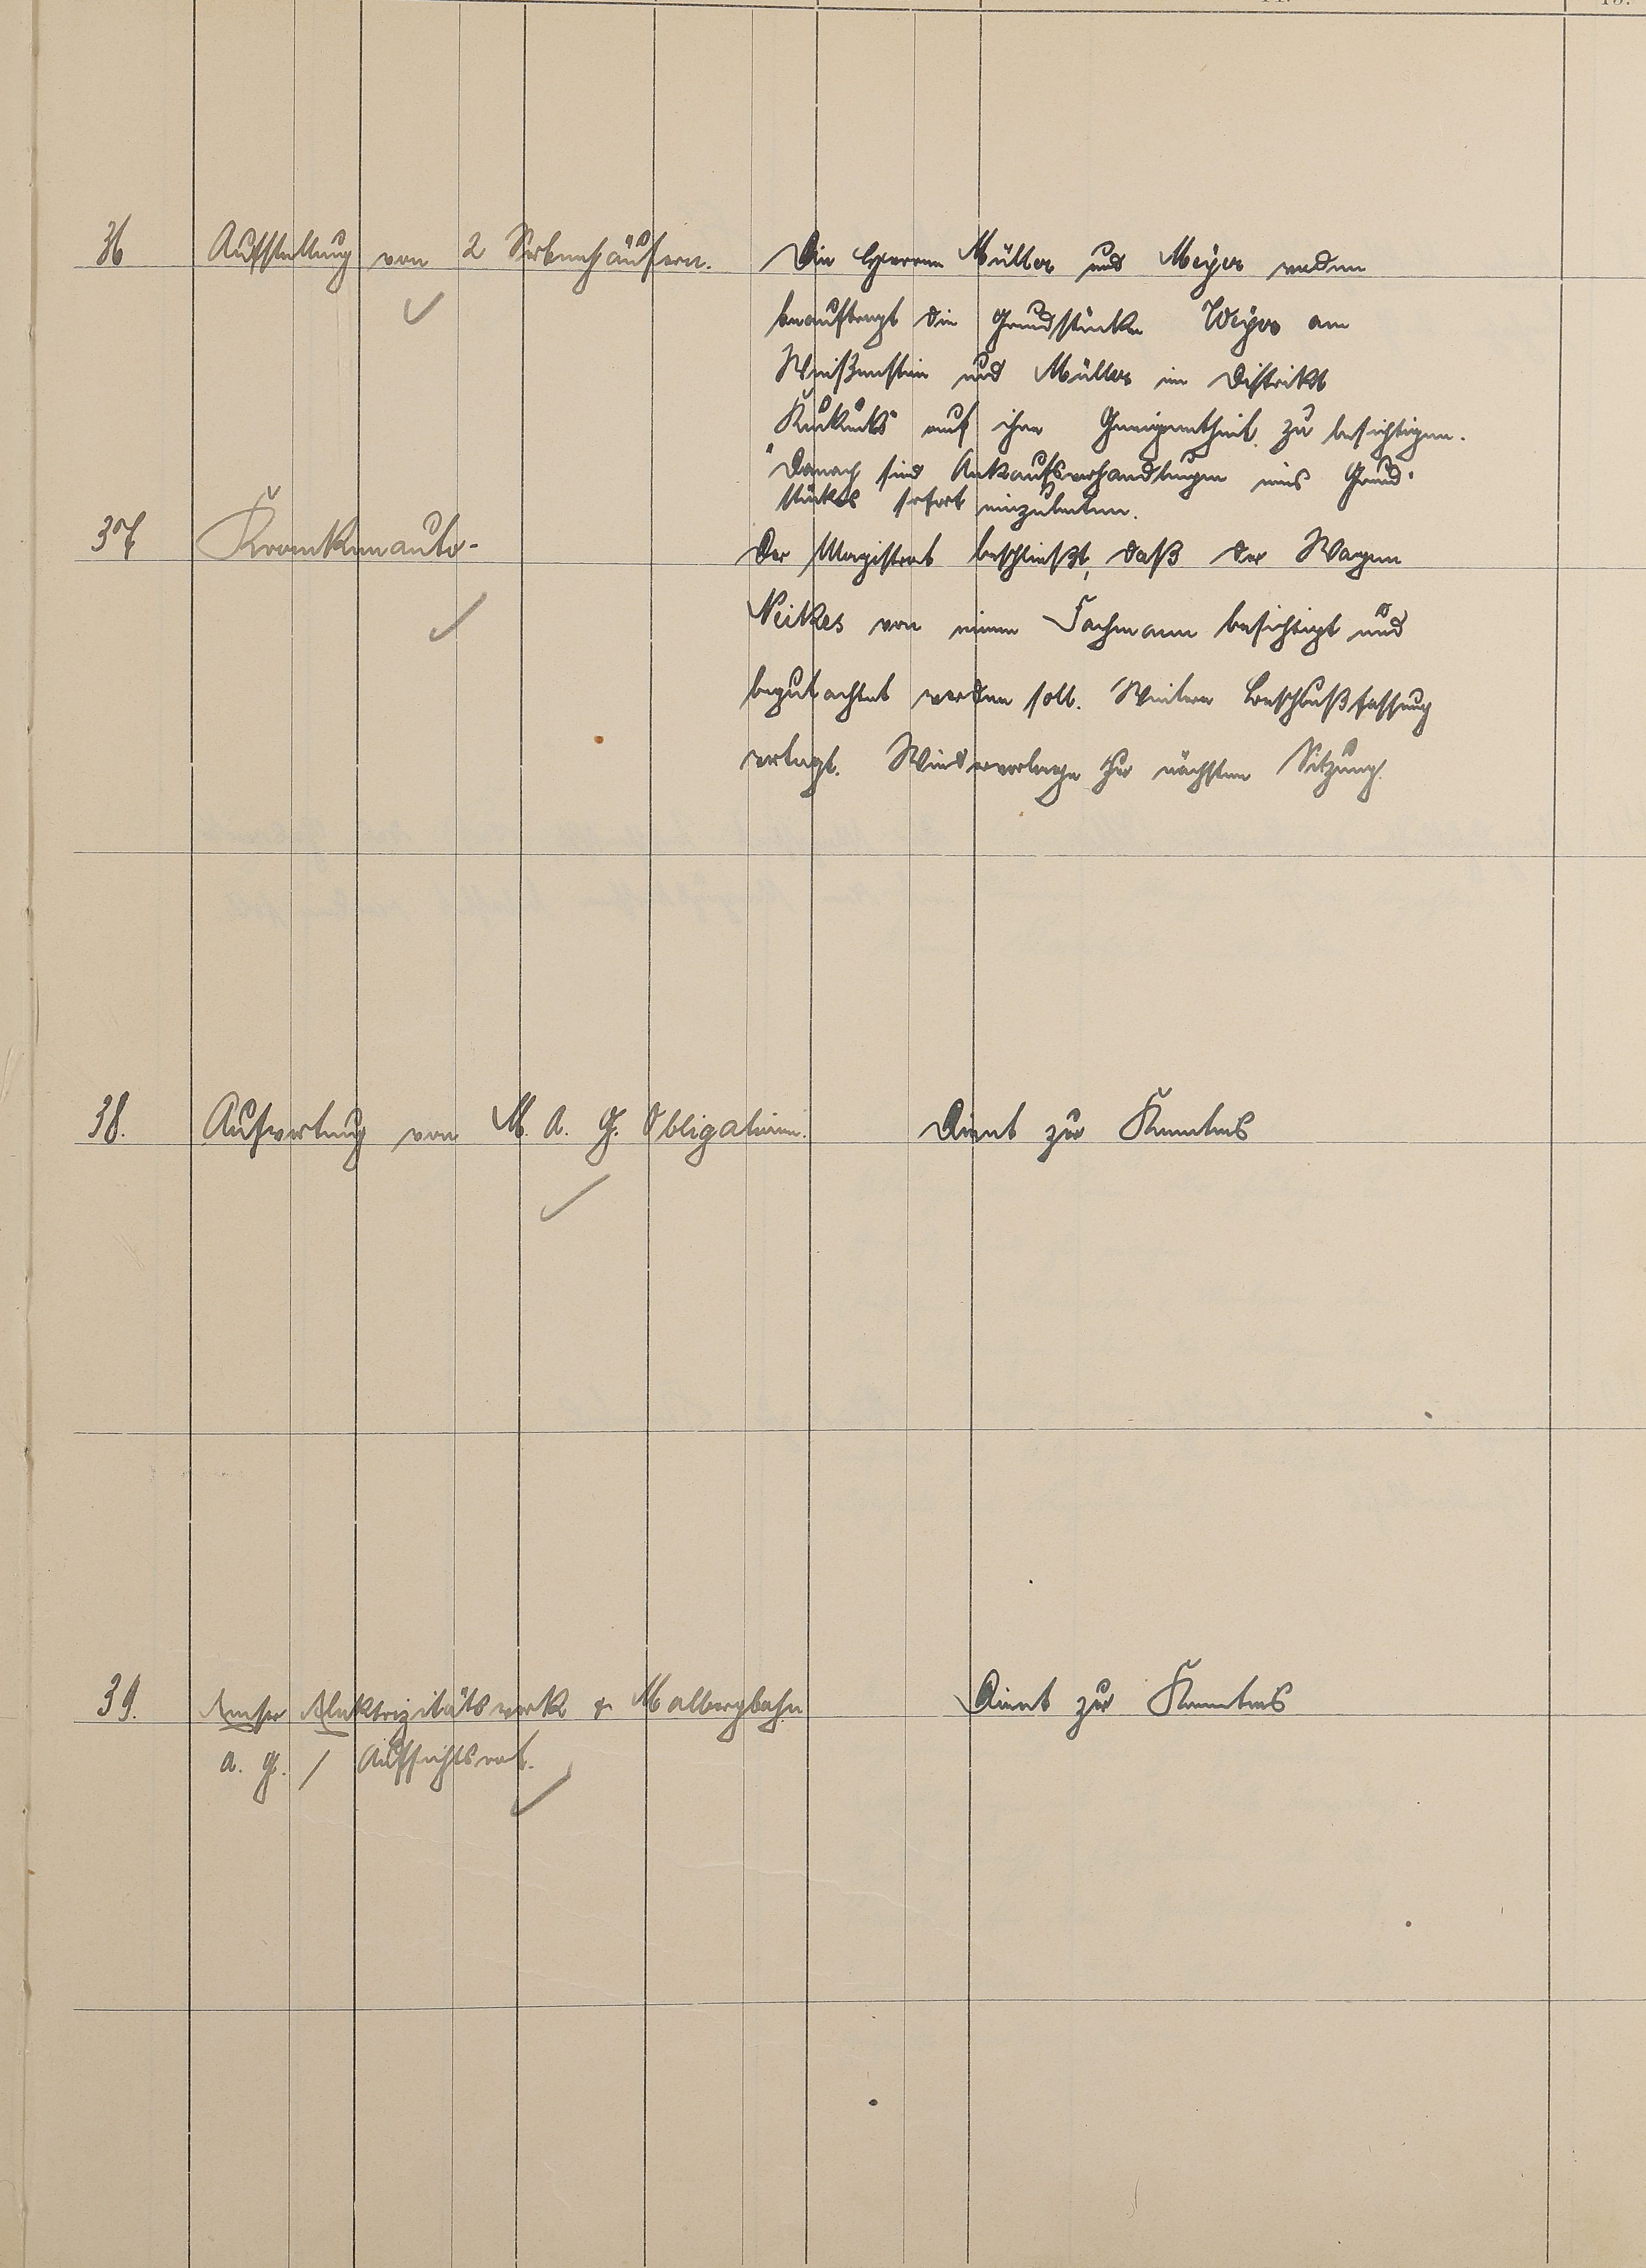 36 Aufstellung von 2 Siebenhäusern. Die Herren Müller und Meyer werden
beauftragt die Grundstücke Weyer am
Weißenstein und Müller im Distrikt
"Kukuks" auf ihre Geeigentheit zu besichtigen.
Danach sind Ankaufsverhandlungen eines Grund-
stückes sofort einzuleiten.
37 Krankenauto.
Der Magistrat beschließt, daß der Wagen
Neikes von einem Fachmann besichtigt und
begutachtet werden soll. Weitere Beschlußfassung
vertagt. Wiedervorlage zur nächsten Sitzung.
38. Aufwertung von M. A. G. Obligationen. Dient zur Kenntnis
39. Emser Elektrizitätswerk & Malbergbahn Dient zur Kenntnis
A. G. / Aufsichtsrat.